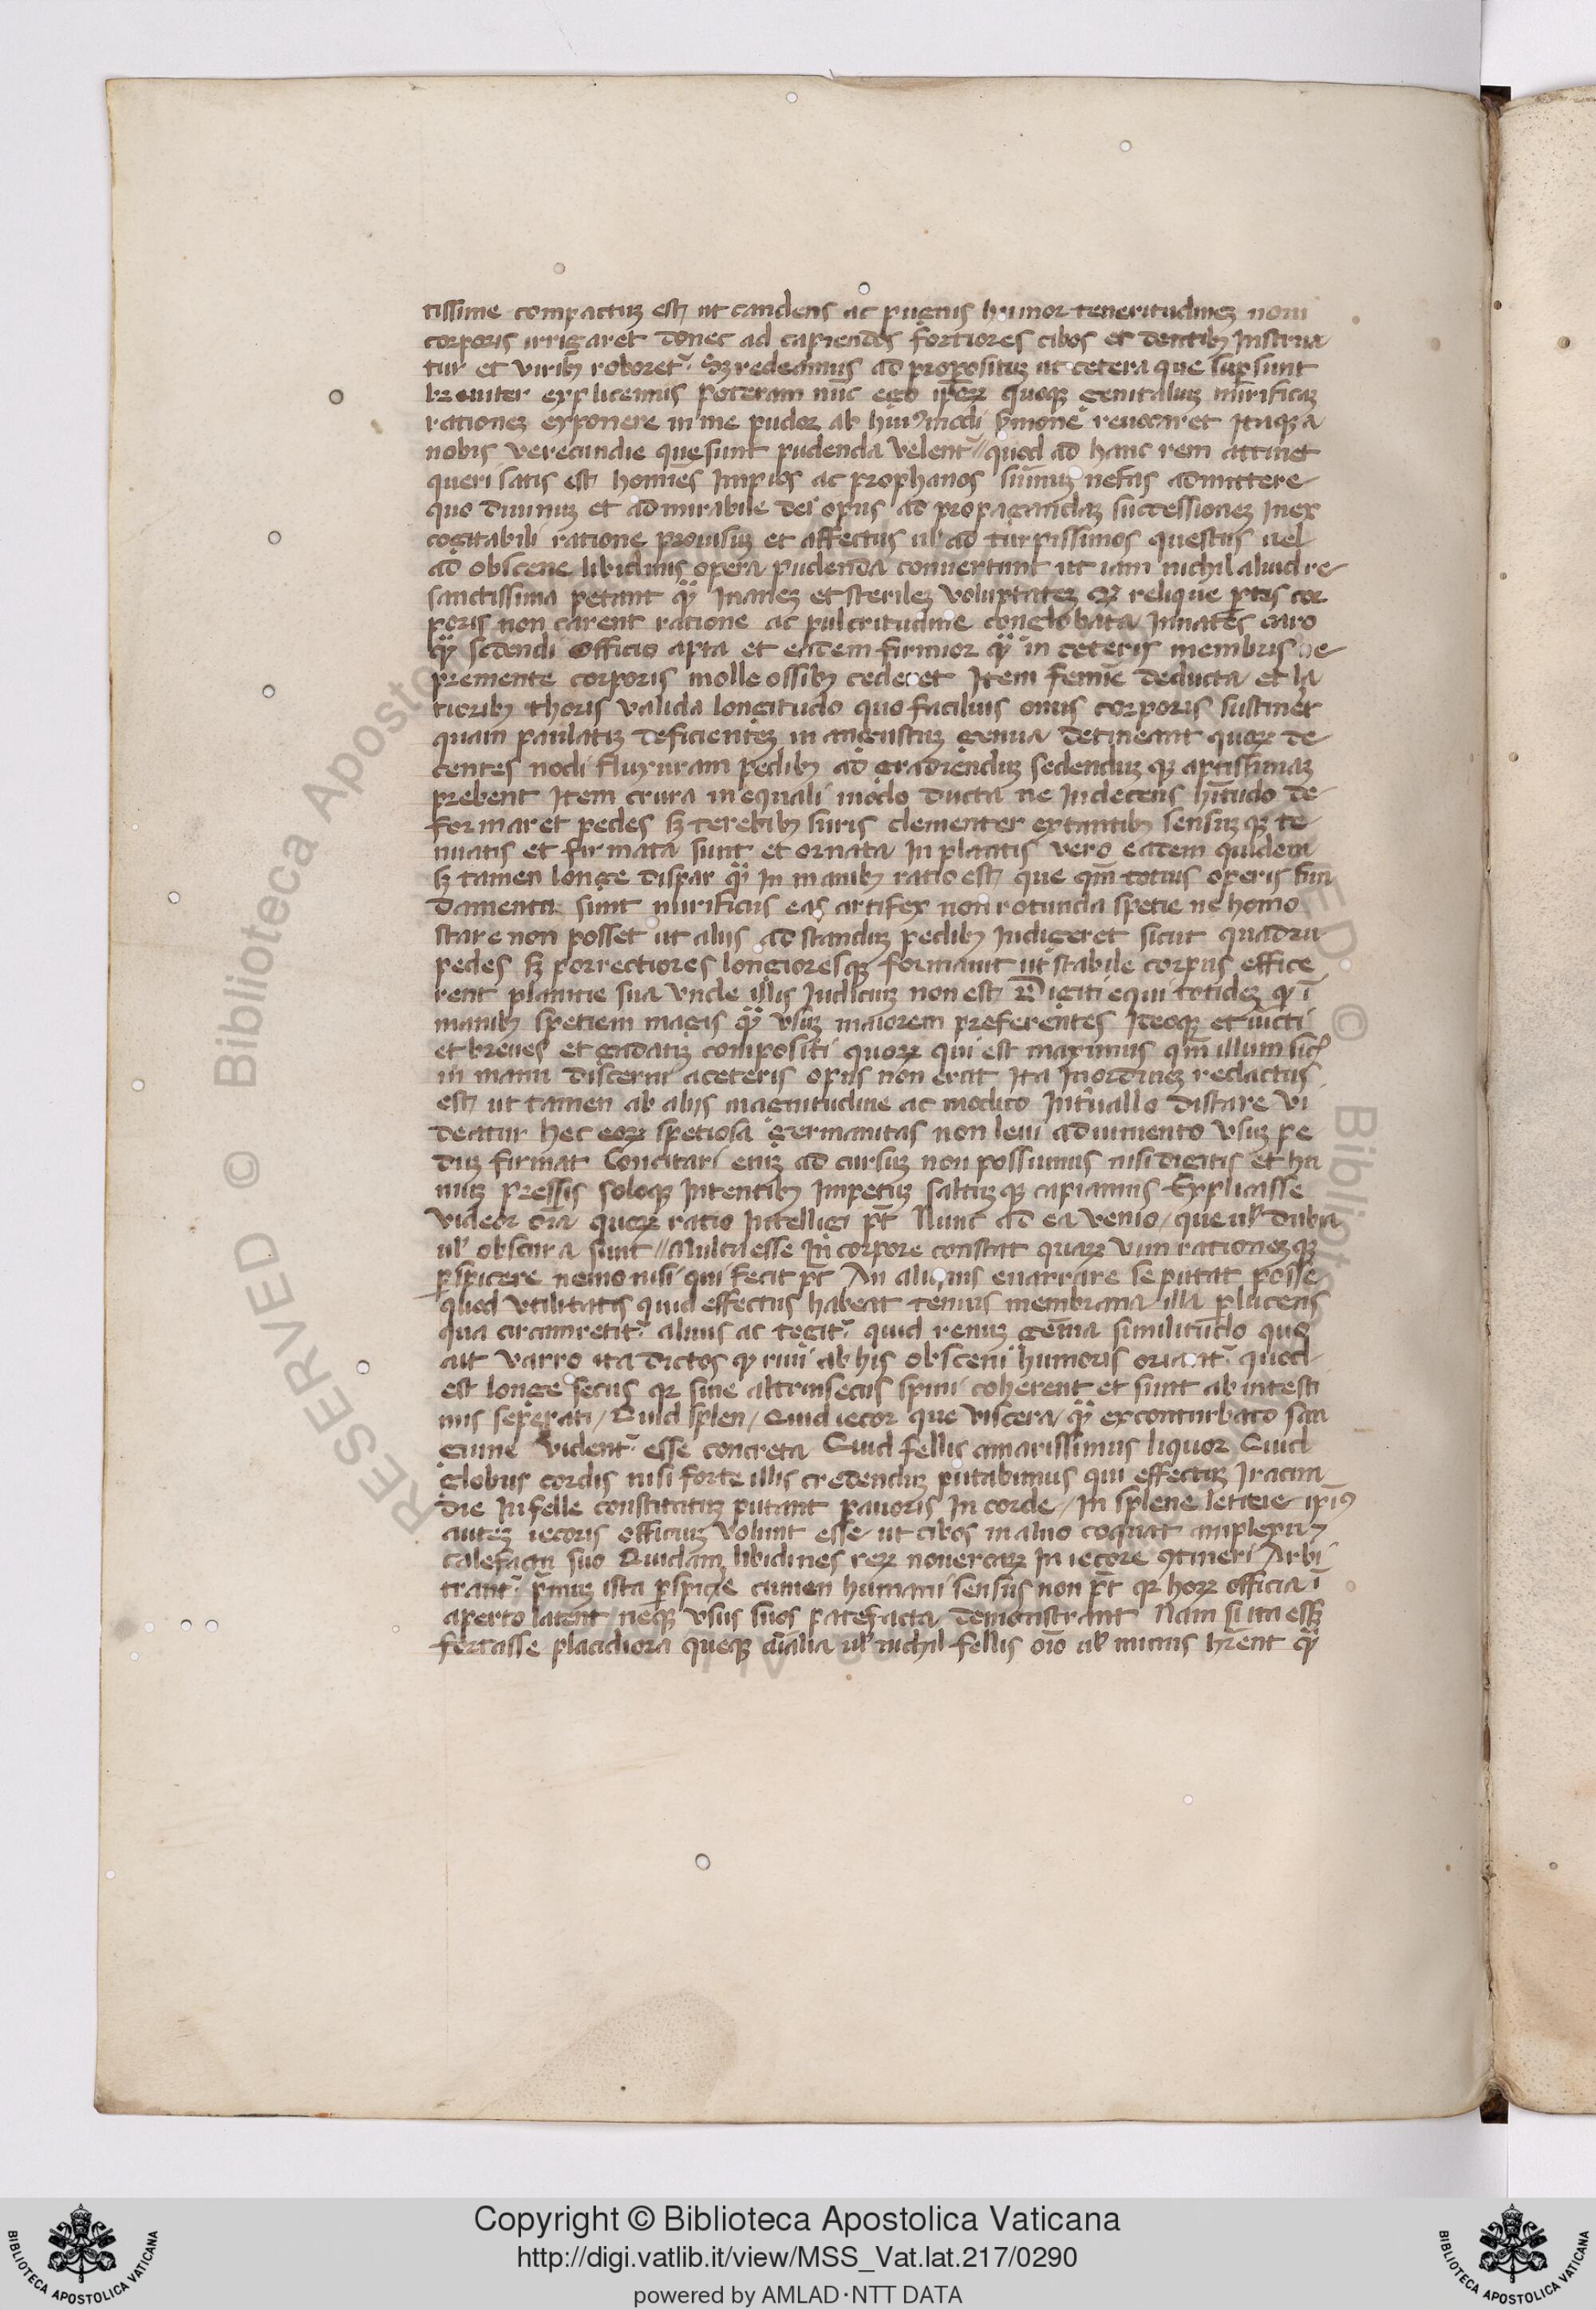 tissime compactuȝ est ut candens ac pinguis humor teneritudineȝ noui
corporis irrigaret donec ad capiendos fortiores cibos et dentibꝫ Instrua
tur et viribꝫ roboret᷑ Sꝫ redeamus ad propositaȝ ut cetera que sup̱sunt
breuiter explicemus poteram nūc ego ip̄oꝝ quoqꝫ genitaliuȝ mirificaȝ
rationeȝ exponere in me pudor ab huiꝰmodi s̄mone reuocaret Itaqꝫ a
nobis verecundie que sunt pudenda velent᷑ // quod ad hanc rem attinet
queri satis est homīes Impios ac prophanos sūmuȝ nefas admittere
quo diuinuȝ et admirabile dei opus ad propagandaȝ successioneȝ Inex
cogitabili ratione prouisuȝ et affectus ul̓ ad turpissimos questus uel
ad obscene libidinis opera pudenda conuertunt ut iam nichil aliud re
sanctissima petant qͣȝ Inaneȝ et sterileȝ voluptateȝ Qꝛ relique p̱tes cor
poris non carent ratione ac pulcritudine conglobata Innates caro
qͣȝ sedendi officio apta et eadem firmior qͣȝ in ceteris membris ne
premente corporis molle ossibꝫ cederet Item femīe deducta et la
tioribꝫ thoris valida longitudo quo facilius onus corporis sustinet
quam paulatiȝ deficienteȝ in angustuȝ genua detineant quoꝝ de
centes nodi fluxuram pedibꝫ ad gradienduȝ sedenduȝ qꝫ aptissimaȝ
prebent Item crura in equali modo ducta ne Indecens hītudo de
formaret pedes sꝫ terebibꝫ suris clementer extantibꝫ sensuȝ qꝫ te
nuatis et firmata sunt et ornata In plantis vero eadem quidem
sꝫ tamen longe dispar qͣȝ In manibꝫ ratio est que qm̄ totius operis fun
damenta sunt mirificus eas artifex non rotunda spetie ne homo
stare non posset ut alijs ad standuȝ pedibꝫ Indigeret sicut quadru
pedes sꝫ porrectiores longioresqꝫ formauit ut stabile corpus effice
rent planitie sua vnde illis Iudiciuȝ non est Digiti equi totideȝ qͥ ī
manibꝫ spetiem magis qͣȝ vsuȝ maiorem preferentes Ideoqꝫ et iūcti
et breues et gradatiȝ compositi quoꝝ qui est maximus qm̄ illum sic̄
in manu discerni a ceteris opus non erat Ita In ordineȝ redactus
est ut tamen ab alijs magnitudine ac modico Int̄uallo distare vi
deatur hec eoꝝ spetiosa germanitas non leui adiumento vsuȝ pe
duȝ firmat Concitari eniȝ ad cursuȝ non possumus nisi digitis et hu
muȝ pressis soloqꝫ Intentibꝫ Impetuȝ saltuȝ qꝫ capiamus Explicasse
videor oīa quoꝝ ratio Intelligi pt̄ Nunc ad ea venio / que ul̓ dubia
ul̓ obscura sunt // Multa esse In corpore constat quaꝝ vim rationeȝqꝫ
p̱spicere nemo nisi qui fecit pt̄ An aliquis enarrare se putat posse
quod vtilitatis quid effectus habeat tenuis membrana illa p̱lucens
qua circumretit᷑ aluus ac tegit᷑ quid renuȝ gēina similitudo quo
ait varro ita dictos qͥ riui ab his obsceni humoris oriant᷑ quod
est longe secus qꝛ siue altrinsecus spini coherent et sunt ab intesti
nis seperati / Quid splen / Quid iecor que viscera / qͣȝ ex conturbato san
guine vident᷑ esse concreta Quid fellis amarissimus liquor Quid
globus cordis nisi forte illis credenduȝ putabimus qui effectuȝ Iracun
die In felle constitutuȝ putant pauoris In corde / In splene letitie ip̄iꝰ
auteȝ iecoris officiuȝ volunt esse ut cibos in aluo coquat amplexu ⁊
calefactu suo Quidam libidines reꝝ nouercaꝝ In iecore ꝯtineri Arbi
trant᷑ p̄muȝ ista p̱spicere cumen humani sensus non pt̄ qꝛ hoꝝ officia ī
aperto latent / neqꝫ vsus suos patefacta demonstrant Nam si ita esset
fortasse placidiora queqꝫ aīalia ul̓ nichil fellis oīo ul̓ minus hr̄ent qͣȝ
Copyright © Biblioteca Apostolica Vaticana
http://digi.vatlib.it/view/MSS_Vat.lat.217/0290
powered by AMLAD·NTT DATA